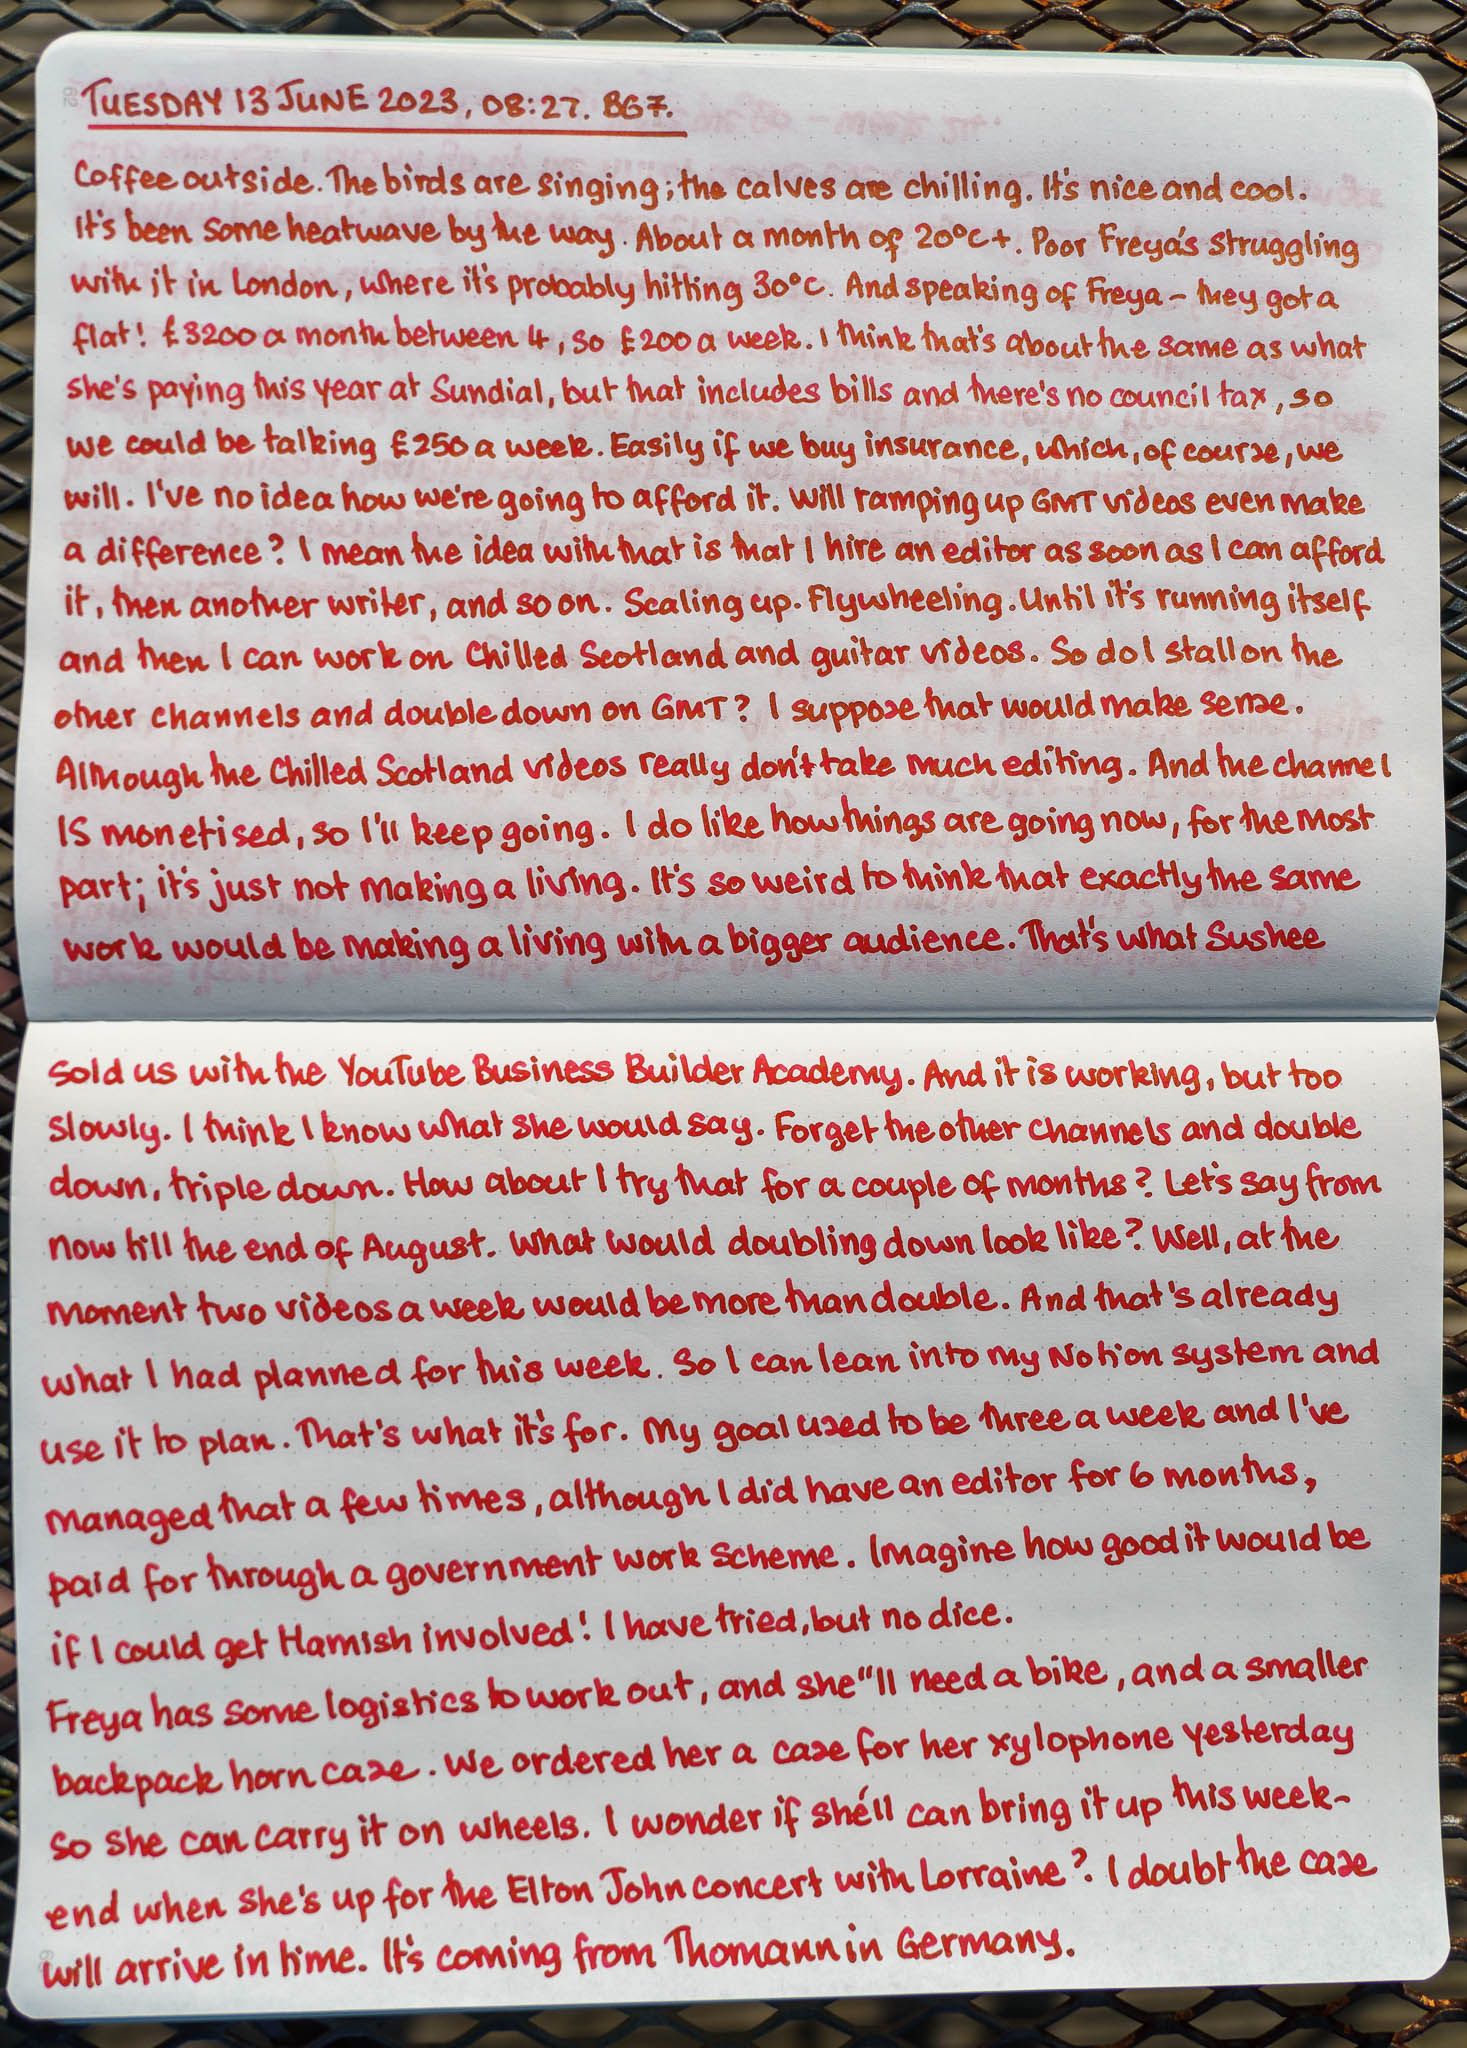 TUESDAY 13 JUNE 2023, 08:27. BG7.
Coffee outside. The birds are singing; the calves are chilling. It's nice and cool.
It's been some heatwave by the way. About a month of 20°C+. Poor Freya's struggling
with it in London, where it's probably hitting 30°C. And speaking of Freya - they got a
flat! £3200 a month between 4, so £200 a week. I think that's about the same as what
she's paying this year at Sundial, but that includes bills and there's no council tax, so
we could be talking £250 a week. Easily if we buy insurance, which, of course, we
will. I've no idea how we're going to afford it. Will ramping up GMT videos even make
a difference? I mean the idea with that is that I hire an editor as soon as I can afford
it, then another writer, and so on. Scaling up. Flywheeling. Until it's running itself
and then I can work on Chilled Scotland and guitar videos. So do I stall on the
other channels and double down on GMT? I suppose that would make sense.
Although the Chilled Scotland videos really don't take much editing. And the channel
IS monetised, so I'll keep going. I do like how things are going now, for the most
part; it's just not making a living. It's so weird to think that exactly the same
work would be making a living with a bigger audience. That's what Sushee
sold us with the YouTube Business Builder Academy. And it is working, but too
slowly. I think I know what she would say. Forget the other channels and double
down, triple down. How about I try that for a couple of months? Let's say from
now till the end of August. What would doubling down look like? Well, at the
moment two videos a week would be more than double. And that's already
what I had planned for this week. So I can lean into my Notion system and
use it to plan. That's what it's for. My goal used to be three a week and I've
managed that a few times, although I did have an editor for 6 months,
paid for through a government work scheme. Imagine how good it would be
if I could get Hamish involved! I have tried, but no dice.
Freya has some logistics to work out, and she"ll need a bike, and a smaller
backpack horn case. We ordered her a case for her xylophone yesterday
so she can carry it on wheels. I wonder if she'll can bring it up this week-
end when she's up for the Elton John concert with Lorraine? I doubt the case
will arrive in time. It's coming from Thomann in Germany.